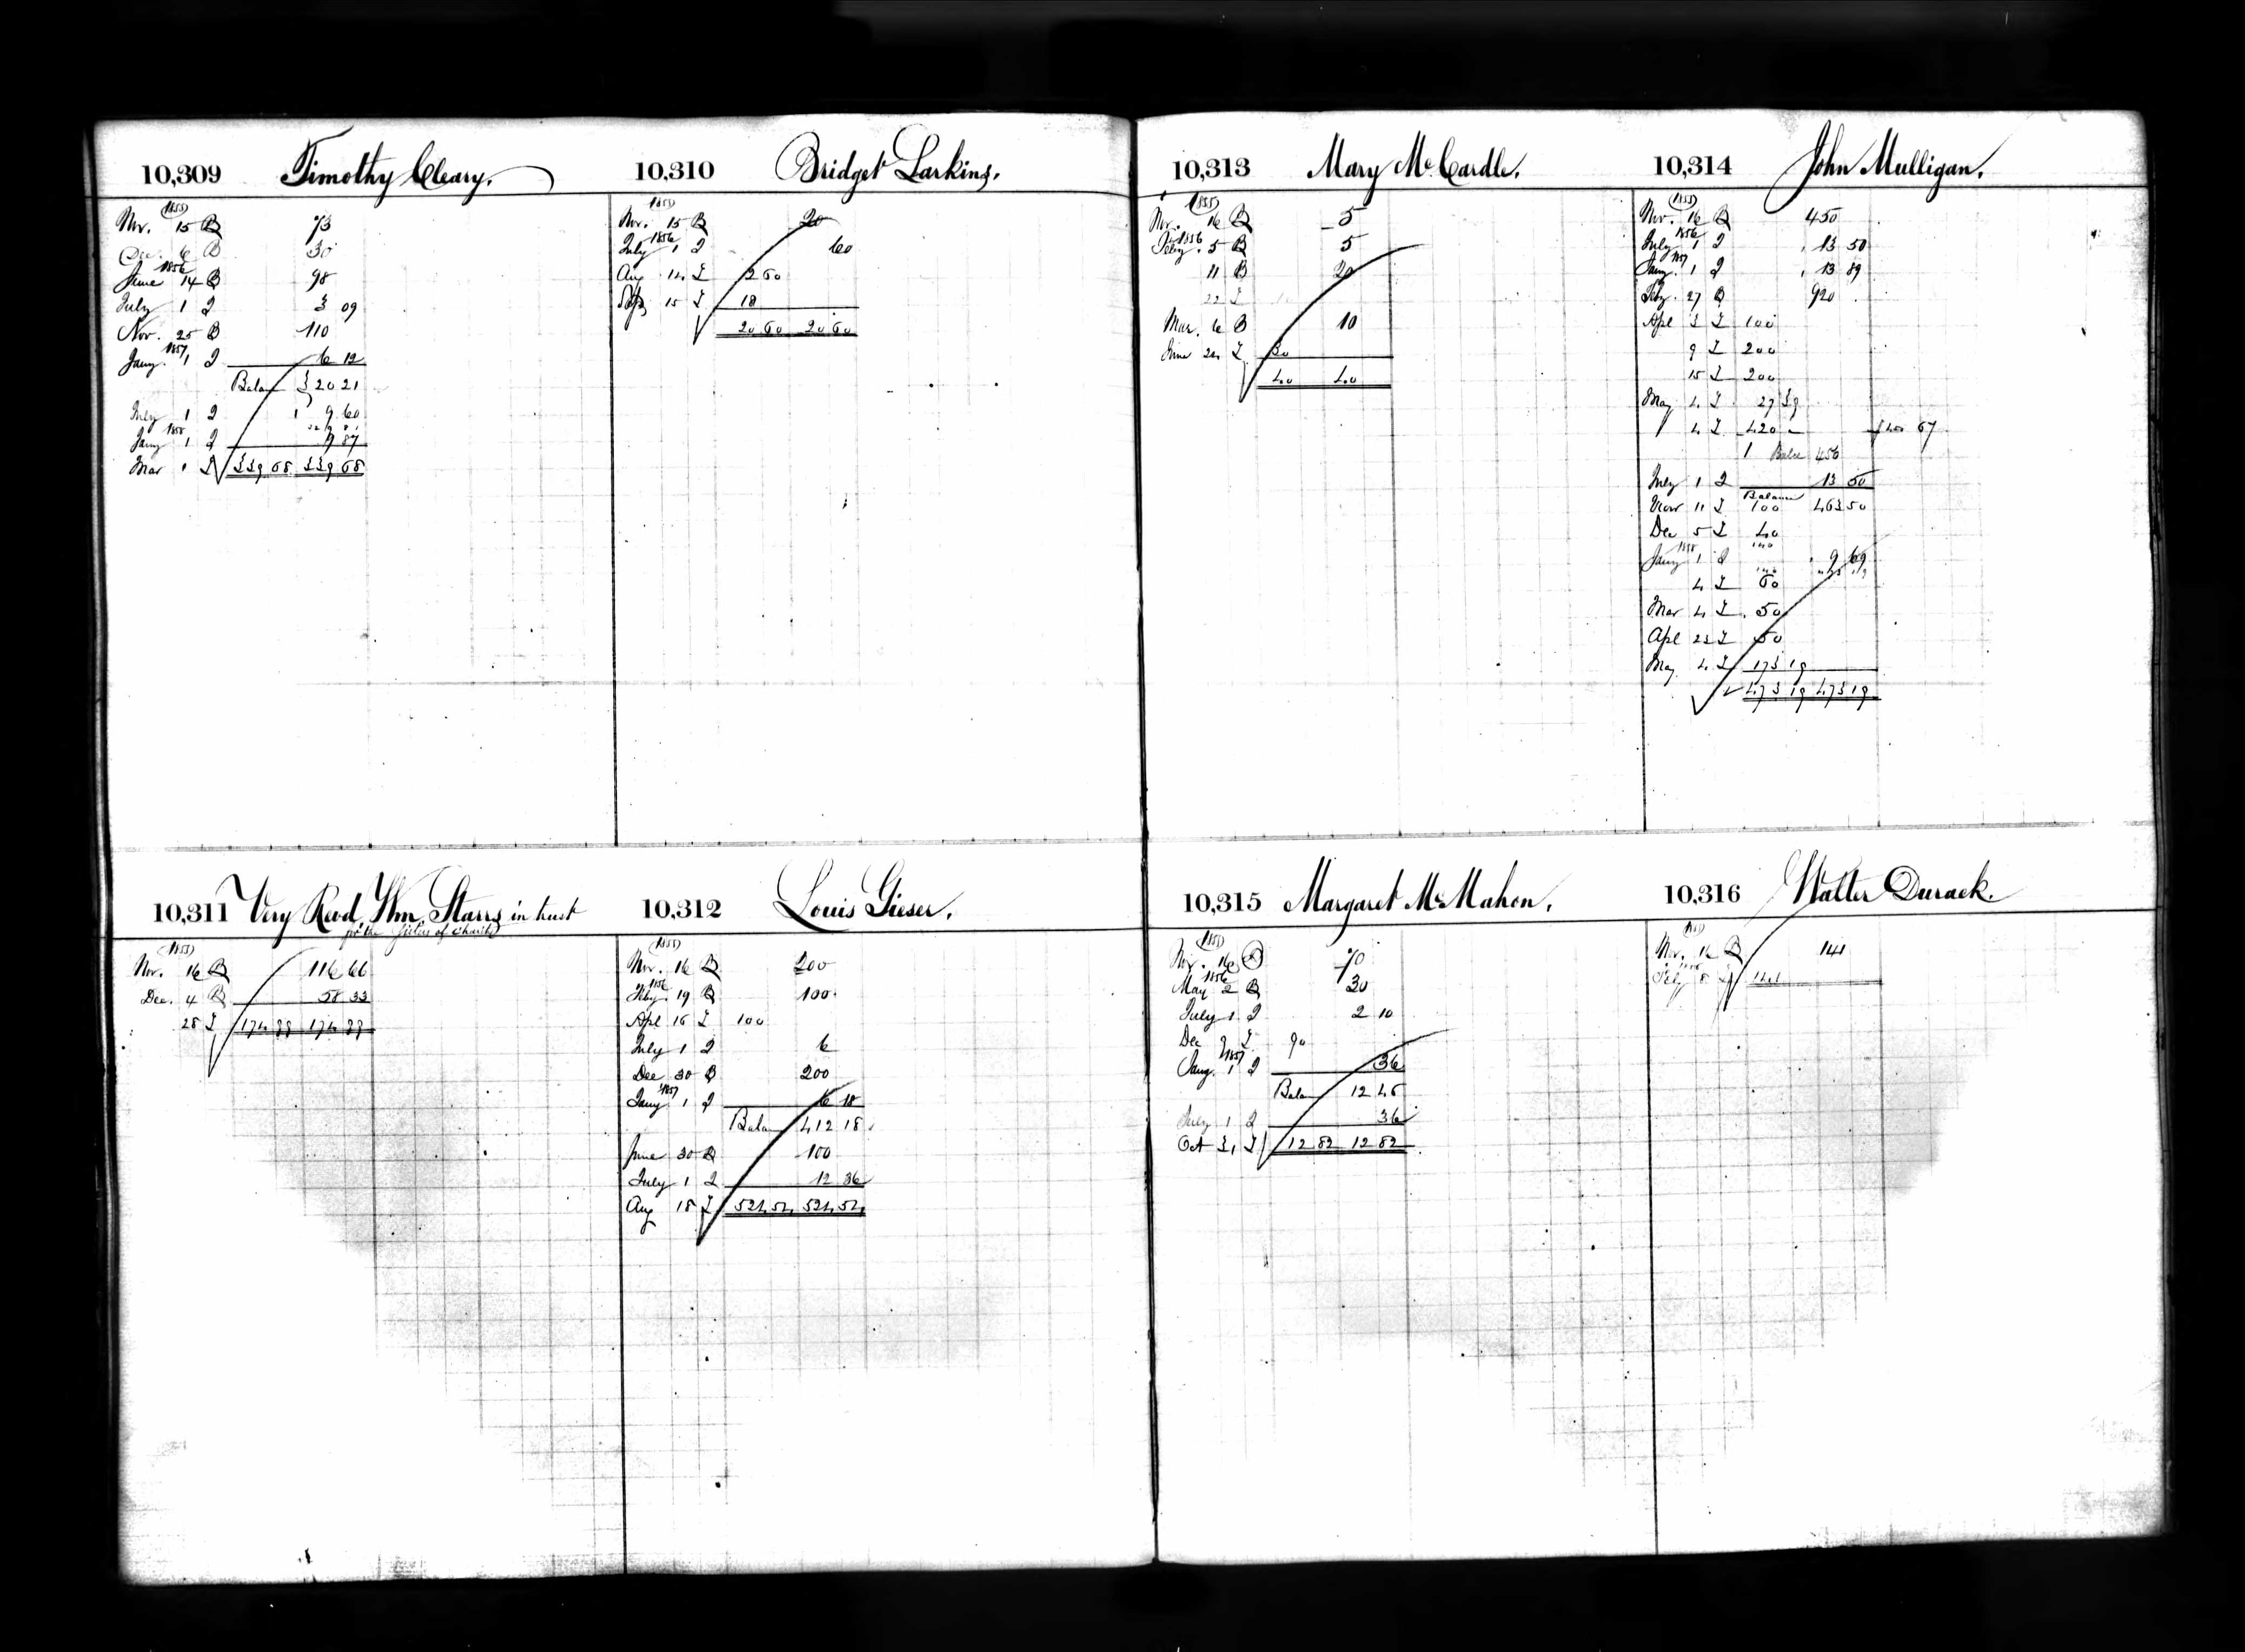 10,309 Timothy Cleary.
1855
Nov. 15 B 73
Dec. 6 B 30
1856
June 14 B 98
July 1 I 3 09
Nov. 25 B 110
1857
Jany. 1 I 6 12
Balan 320 21
July 1 I 9 60
1858
Jany 1 I 9 87
Mar 1 I 339 68 339 68
10,310 Bridget Larkins.
1855
Nov. 15 B 20
1856
July 1 I 60
Aug 14 I 2 60
Sep 15 I 18
20 60 20 60
10,311 Very Revd. Wm. Starrs in trust
for the Sisters of Charity
1855
Nov. 16 B 116 66
Dec. 4 B 58 33
28 I 174 99 174 99
10,312 Louis Gieser.
1855
Nov. 16 B 200
1856
Feby. 19 B 100
Apl 16 I 100
July 1 I 6
Dec 30 B 200
1857
Jany 1 I 6 18
Balan 412 18
June 30 B 100
July 1 I 12 36
Aug 18 I 524 54 524 54
10,313 Mary McCardle.
1855
Nov. 16 B 5
1856
Feby. 5 B 5
11 B 20
22 I
Mar. 6 B 10
June 24 I 30
40 40
10,314 John Mulligan.
1855
Nov. 16 B 450
1856
July 1 I 13 50
1857
Jany. 1 I 13 89
Feby. 27 B 920
Apl 3 I 100
9 I 200
15 I 200
May 4 I 27 39
4 I 420
1 Balce 450
July 1 I 13 50
Balance
Nov 11 I 100 463 50
Dec 5 I 40
1858
Jany 1 I 9 69
4 I 60
Mar 4 I 50
Apl 23 I 50
May 4 I 173 19
473 19 473 19
10,315 Margaret McMahon.
1855
Nov. 16 B 70
1856
May 2 B 30
July 1 I 2 10
Dec 9 I 90
1857
Jany. 1 I 36
Balan 12 46
July 1 I 36
Oct 31 I 12 82 12 82
10,316 Walter Durack.
1855
Nov. 16 B 141
Feby 8 I 141